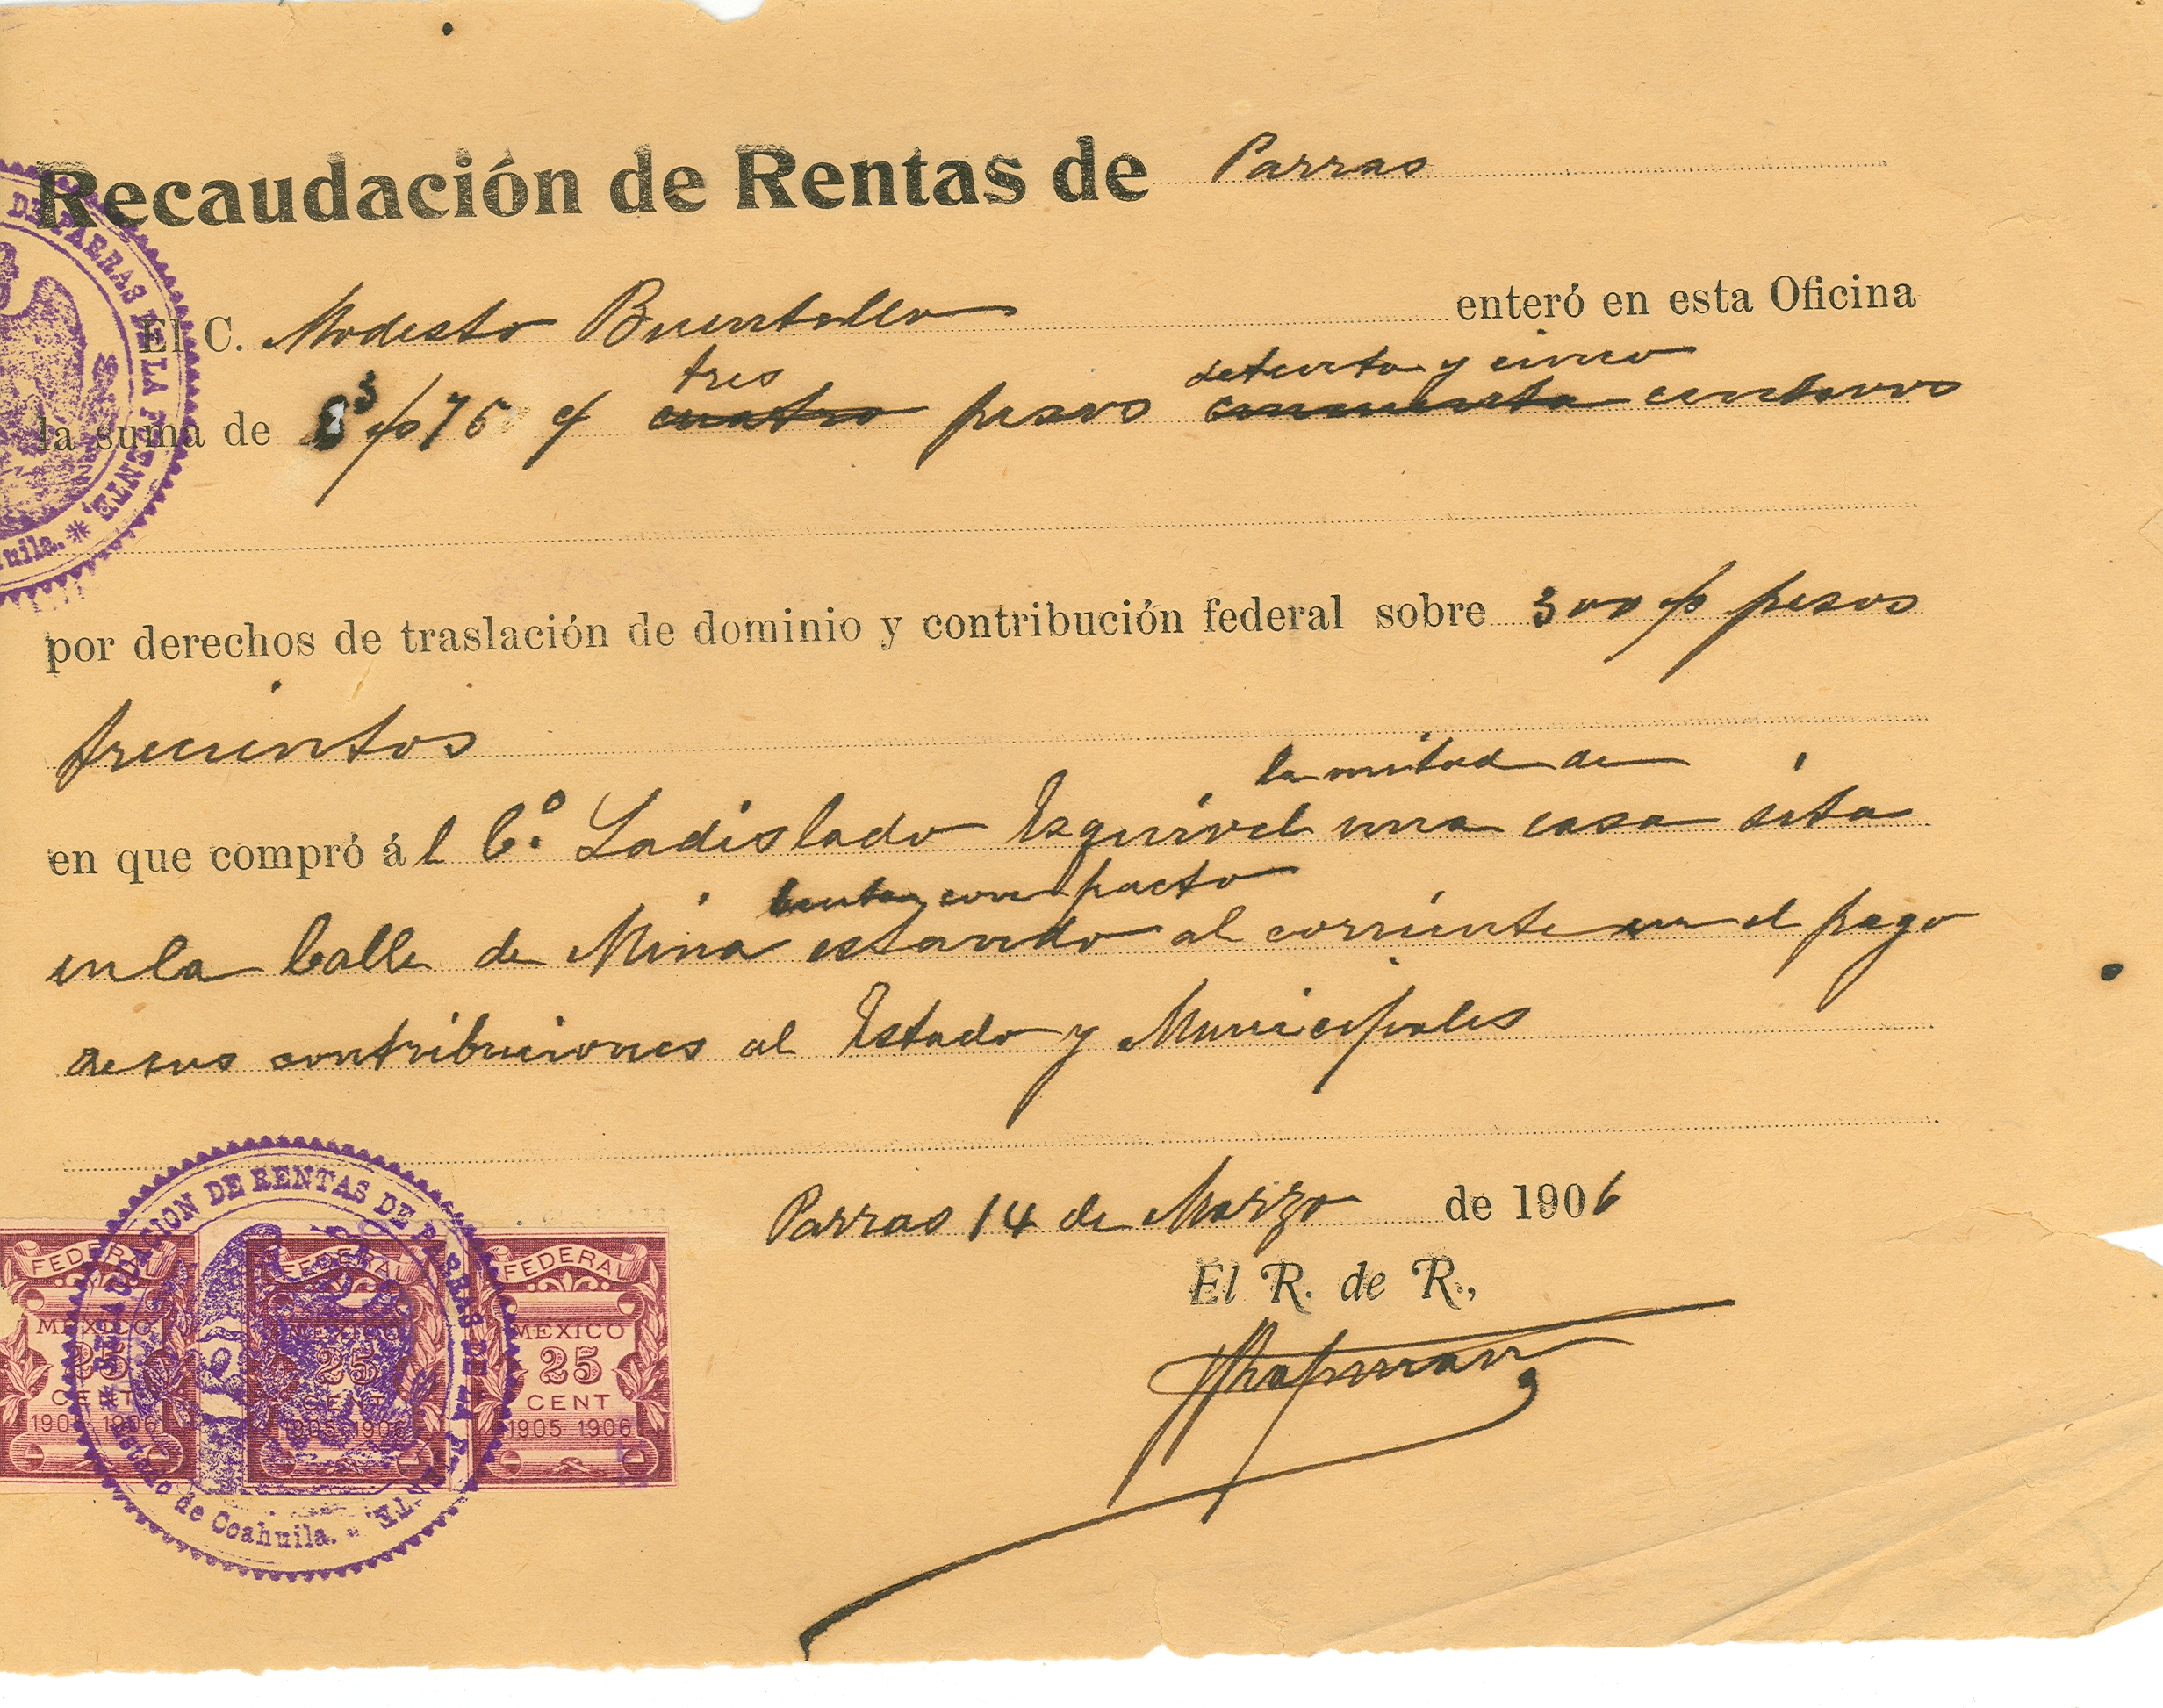 Recaudación de Rentas de Parras
El C. Modesto Buentello enteró en esta Oficina
tres setenta y cinco
la suma de $3 75 cuatro pesos cincuenta centavos
por derechos de traslación de dominio y contribución federal sobre 300 pesos
trecientos
la mitad de
en que compró ál C.º Ladislado Esquivel una casa sita
venta con pacto
en la Calle de Mina estando al corriente en el pago
de sus contribuciones al Estado y Municipales
Parras 14 de Marzo de 1906
El R. de R.,
DE PARRAS DE LA FUENTE.
RECAUDACION DE RENTAS DE PARRAS DE LA FUENTE
Estado de Coahuila.
FEDERAL FEDERAL FEDERAL
MEXICO MEXICO MEXICO
25 25 25
CENT CENT CENT
1905 1906 1905 1906 1905 1906